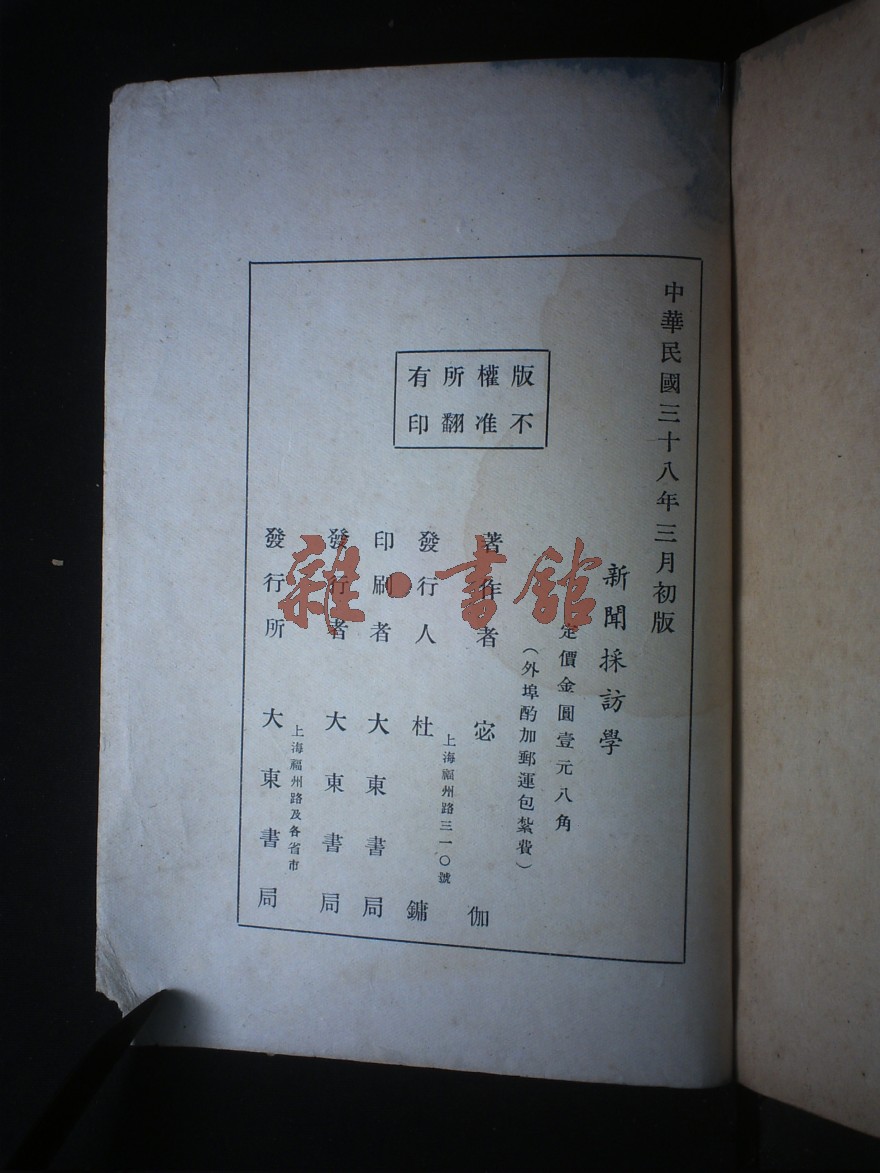 中華民國三十八年三月初版
新聞採訪學
定價金圓壹元八角
（外埠酌加郵運包紮費）
版權所有
不准翻印
著作者 宓伽
上海福州路三一〇號
發行人 杜鏞
印刷者 大東書局
發行者 大東書局
上海福州路及各省市
發行所 大東書局
雜·書館